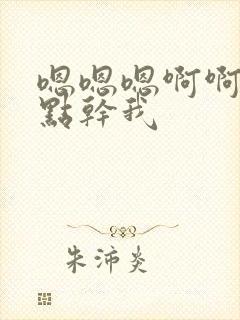 嗯嗯嗯啊啊
點幹我
朱沛炎